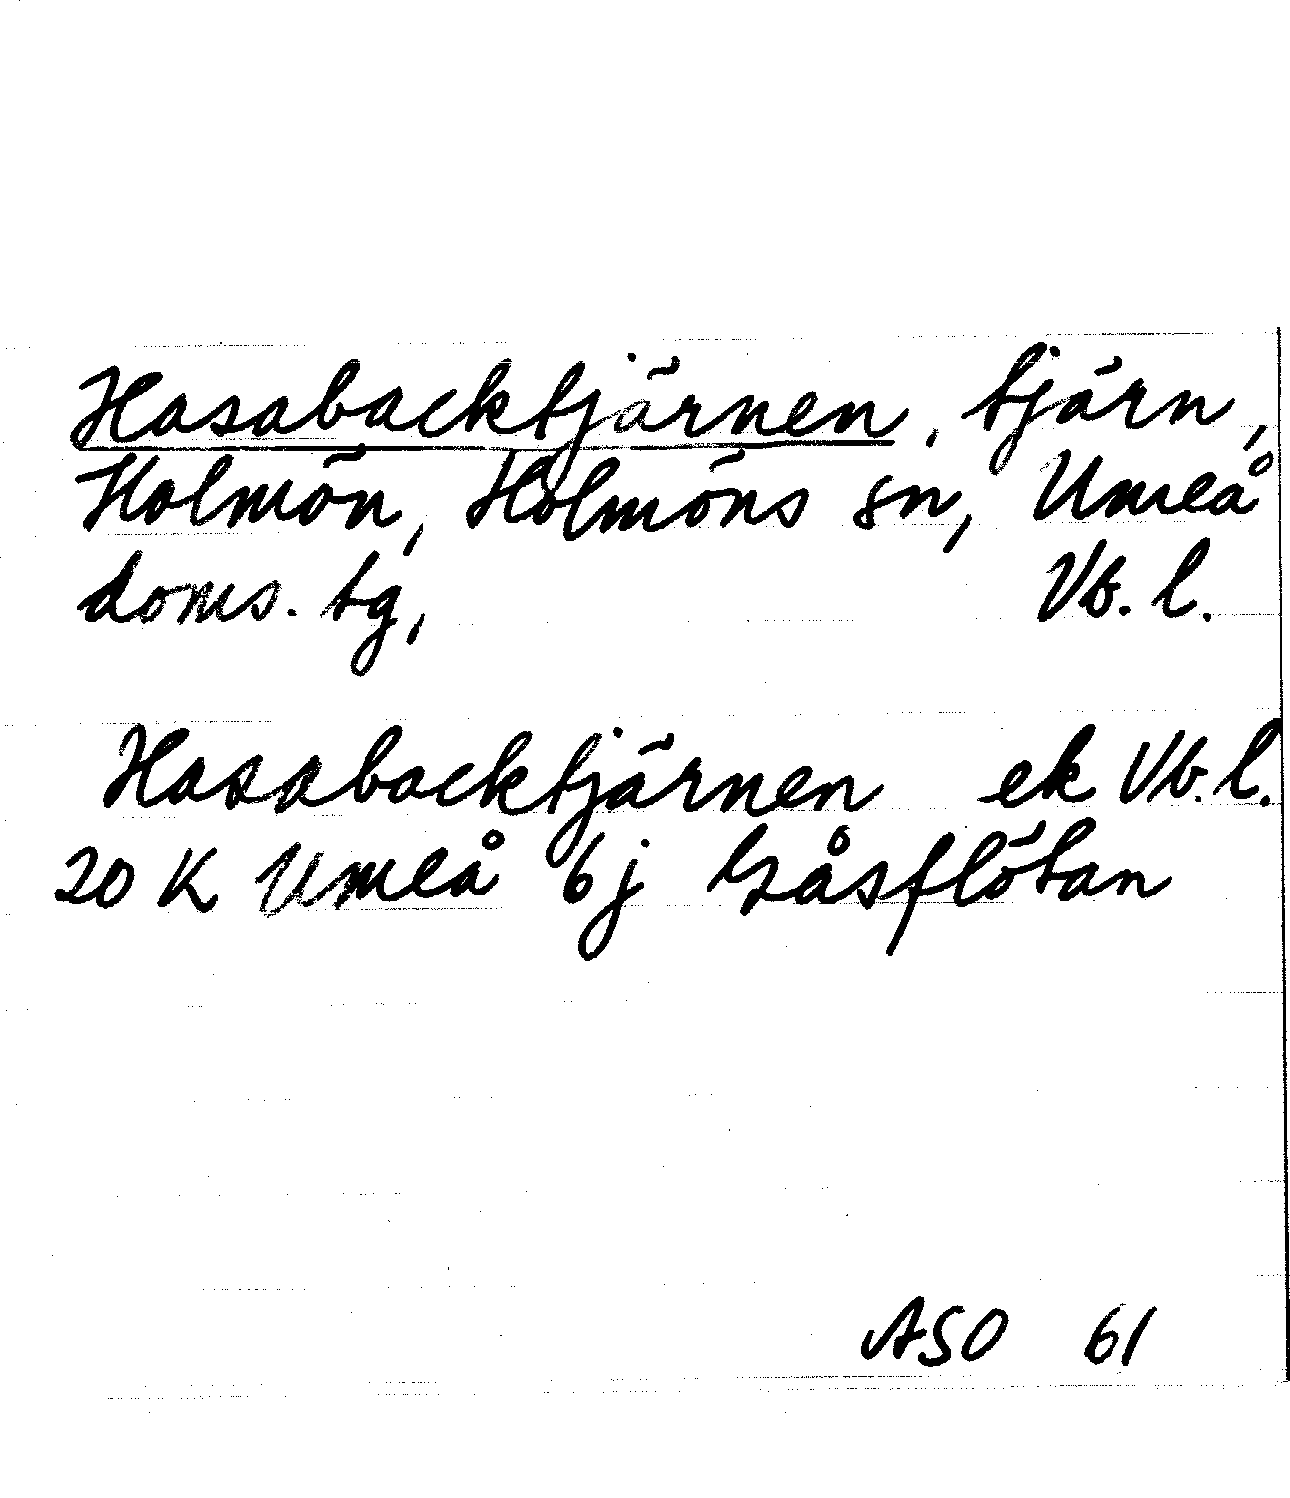 Hasabacktjärnen, tjärn,
Holmön, Holmöns sn, Umeå
doms. tg, Vb. l.
Hasabacktjärnen ek Vb. l.
20 K Umeå 6j Gåsflötan
ASO 61